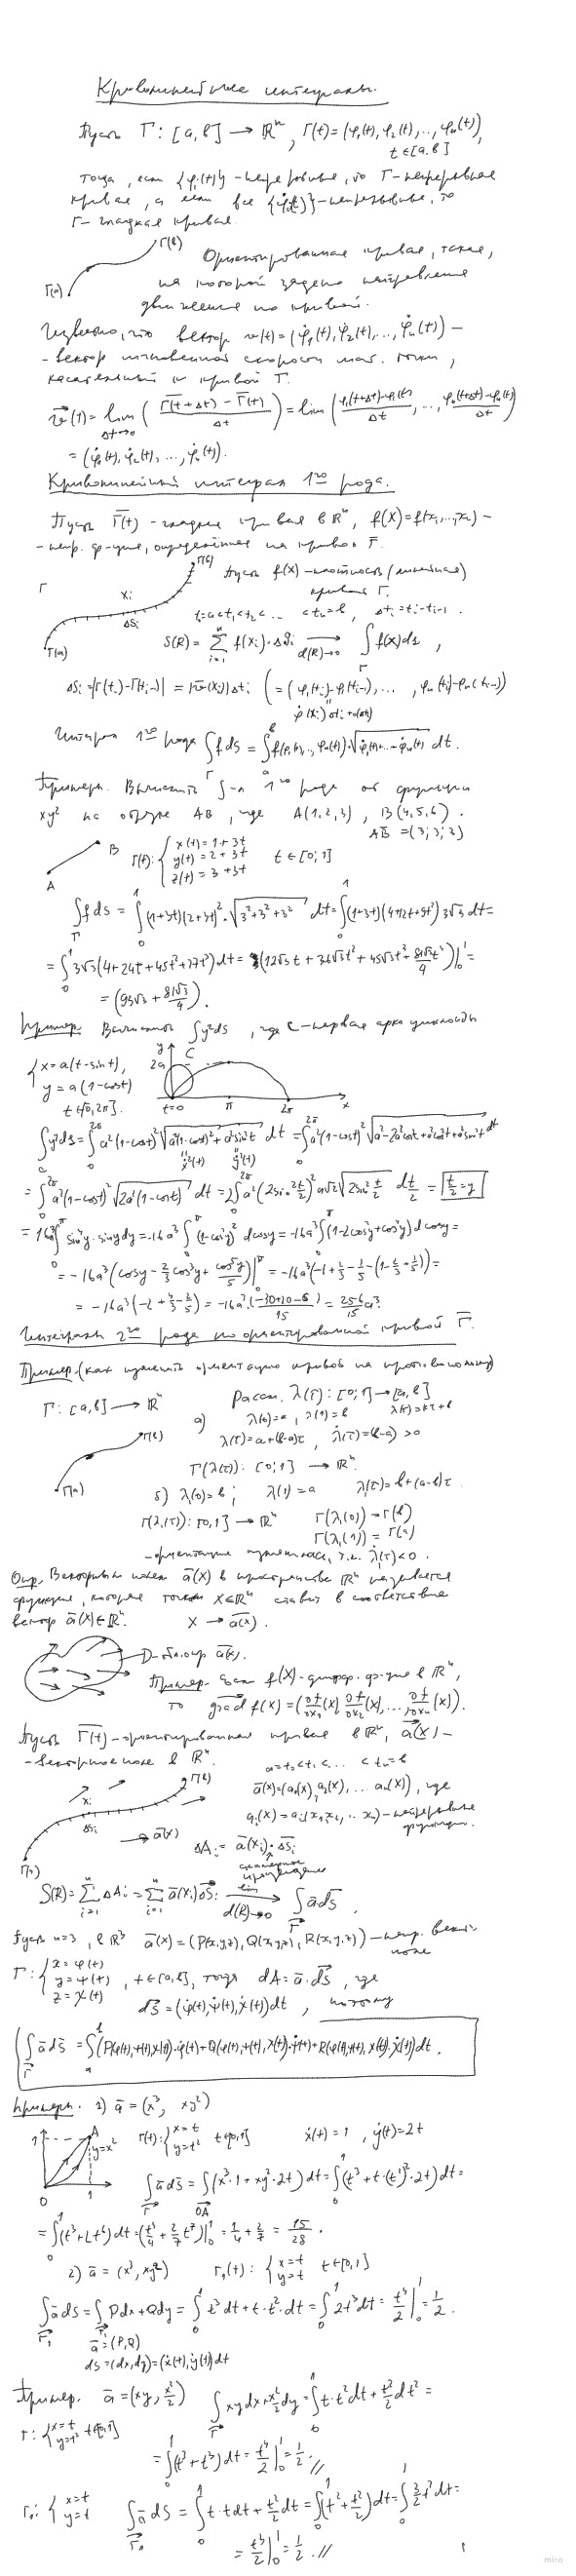 Криволинейные интегралы.
Пусть Γ: [a,b] → ℝⁿ, Γ(t)=(φ₁(t), φ₂(t),.., φₙ(t)),
t∈[a,b]
тогда, если {φᵢ(t)} - непрерывные, то Γ - непрерывная
кривая, а если все {φ̇ᵢ(t)} - непрерывные, то
Γ - гладкая кривая.
Γ(a) Γ(b)
Ориентированная кривая, такая,
на которой задано направление
движения по кривой.
что вектор v(t)=(φ̇₁(t), φ̇₂(t),..., φ̇ₙ(t)) -
- вектор мгновенной скорости мат. точки,
касательный к кривой Γ.
v(t) = lim Δt→0 ((Γ(t+Δt) - Γ(t))/Δt) = lim ((φ₁(t+Δt)-φ₁(t))/Δt, ..., (φₙ(t+Δt)-φₙ(t))/Δt)
= (φ̇₁(t), φ̇₂(t),..., φ̇ₙ(t)).
Криволинейный интеграл 1го рода.
Пусть Γ(t) - гладкая кривая в ℝⁿ, f(X)=f(x₁,...,xₙ) -
- непр. ф-ция, определённая на кривой Γ.
Γ Γ(a) Xᵢ ΔSᵢ Γ(b)
Пусть f(X) - плотность (линейная)
кривой Γ.
t₀=a<t₁<t₂<... <tₙ=b, Δtᵢ=tᵢ-tᵢ₋₁.
S(R) = Σ f(Xᵢ)·ΔSᵢ → d(R)→0 ∫ f(X)ds,
ΔSᵢ=|Γ(tᵢ)-Γ(tᵢ₋₁)| = |v(Xᵢ)|Δtᵢ (=(φ₁(tᵢ)-φ₁(tᵢ₋₁),..., φₙ(tᵢ)-φₙ(tᵢ₋₁))
Интеграл 1го рода ∫fds = ∫f(φ₁(t),.., φₙ(t))·√(φ̇₁²(t)+...+φ̇ₙ²(t)) dt.
Пример. Вычислить ∫-л 1го рода от функции
xy² на отрезке AB, где A(1,2,3), B(4,5,6).
AB=(3;3;3)
A B Γ(t): { x(t)=1+3t
y(t)=2+3t t∈[0;1]
z(t)=3+3t
∫fds = ∫(1+3t)(2+3t)²·√(3²+3²+3²) dt = ∫(1+3t)(4+12t+9t²)3√3 dt =
= ∫3√3(4+24t+45t²+27t³)dt = (12√3t + 36√3t² + 45√3t³ + 81√3/4 t⁴)|₀¹ =
= (93√3 + 81√3/4).
Пример. Вычислить ∫y²ds, где C - первая арка циклоиды
{ x=a(t-sint),
y=a(1-cost)
t∈[0,2π].
y 2a C t=0 π 2π x
∫y²ds = ∫a²(1-cost)²√(a²(1-cost)²+a²sin²t) dt = ∫a²(1-cost)²√(a²-2a²cost+a²cos²t+a²sin²t) dt
ẋ²(t) ẏ²(t)
= ∫a²(1-cost)²√(2a²(1-cost)) dt = 2∫a²(2sin²t/2)²a√2√(2sin²t/2) dt/2 = |t/2=y|
= 16a³∫sin⁴y·siny dy = -16a³∫(1-cos²y)² dcosy = -16a³∫(1-2cos²y+cos⁴y)dcosy =
= -16a³(cosy - 2/3 cos³y + cos⁵y/5)|₀^π = -16a³(-1+2/3-1/5-(1-2/3+1/5)) =
= -16a³(-2+4/3-2/5) = -16a³·((-30+20-6)/15) = 256/15 a³.
Интегралы 2го рода по ориентированной кривой Γ.
Пример. (как изменить ориентацию кривой на противоположную)
Γ: [a,b] → ℝⁿ
Γ(a) Γ(b)
а) Рассм. λ(τ): [0;1] → [a,b]
λ(0)=a, λ(1)=b λ(τ)=kτ+b
λ(τ)=a+(b-a)τ, λ̇(τ)=(b-a)>0
Γ(λ(τ)): [0;1] → ℝⁿ.
б) λ₁(0)=b; λ₁(1)=a λ₁(τ)=b+(a-b)τ.
Γ(λ₁(τ)): [0,1] → ℝⁿ Γ(λ₁(0))=Γ(b)
Γ(λ₁(1))=Γ(a)
- ориентация изменилась, т.к. λ̇₁(τ)<0.
Опр. Векторным полем a(X) в пространстве ℝⁿ называется
функция, которая точкам X∈ℝⁿ ставит в соответствие
вектор a(X)∈ℝⁿ. X → a(X).
D - обл. опр a(X).
Пример. Если f(X) - диффер. ф-ция в ℝⁿ,
то grad f(X) = (∂f/∂x₁(X), ∂f/∂x₂(X), ... ∂f/∂xₙ(X)).
Пусть Γ(t) - ориентированная кривая в ℝⁿ, a(X) -
- векторное поле в ℝⁿ.
Γ(a) Xᵢ ΔSᵢ Γ(b) → a(X)
a=t₀<t₁<... <tₙ=b
a(X)=(a₁(X), a₂(X),... aₙ(X)), где
aᵢ(X)=aᵢ(x₁,x₂,..xₙ) - непрерывные
функции.
ΔAᵢ = a(Xᵢ)·ΔSᵢ
скалярное
произведение
S(R)=ΣΔAᵢ=Σa(Xᵢ)ΔSᵢ lim → d(R)→0 ∫a dS
Пусть n=3, в ℝ³ a(X)=(P(x,y,z), Q(x,y,z), R(x,y,z)) - непр. вект.
поле
Γ: { x=φ(t)
y=ψ(t), t∈[a,b], тогда dA=a·dS, где
z=χ(t)
dS=(φ̇(t), ψ̇(t), χ̇(t))dt, поэтому
∫a dS = ∫(P(φ(t),ψ(t),χ(t))·φ̇(t)+Q(φ(t),ψ(t),χ(t))·ψ̇(t)+R(φ(t),ψ(t),χ(t))·χ̇(t))dt.
Примеры. 1) a=(x³, xy²)
1 A y=x² 0 1
Γ(t): { x=t
y=t² t∈[0,1] ẋ(t)=1, ẏ(t)=2t
∫a dS = ∫(x³·1+xy²·2t)dt = ∫(t³+t·(t²)²·2t)dt =
= ∫(t³+2t⁶)dt = (t⁴/4+2/7 t⁷)|₀¹ = 1/4+2/7 = 15/28.
2) a=(x³, xy²) Γ₁(t): { x=t
y=t t∈[0,1]
∫a dS = ∫Pdx+Qdy = ∫t³dt+t·t²·dt = ∫2t³dt = t⁴/2|₀¹ = 1/2.
a=(P,Q)
dS=(dx,dy)=(ẋ(t),ẏ(t))dt
Пример. a=(xy, x²/2) ∫xydx+x²/2dy = ∫t·t²dt+t²/2dt² =
Γ: { x=t
y=t² t∈[0,1]
= ∫(t³+t³)dt = t⁴/2|₀¹ = 1/2. //
Γ₁: { x=t
y=t
∫a dS = ∫t·tdt+t²/2dt = ∫(t²+t²/2)dt = ∫3/2t²dt =
= t³/2|₀¹ = 1/2. //
miro